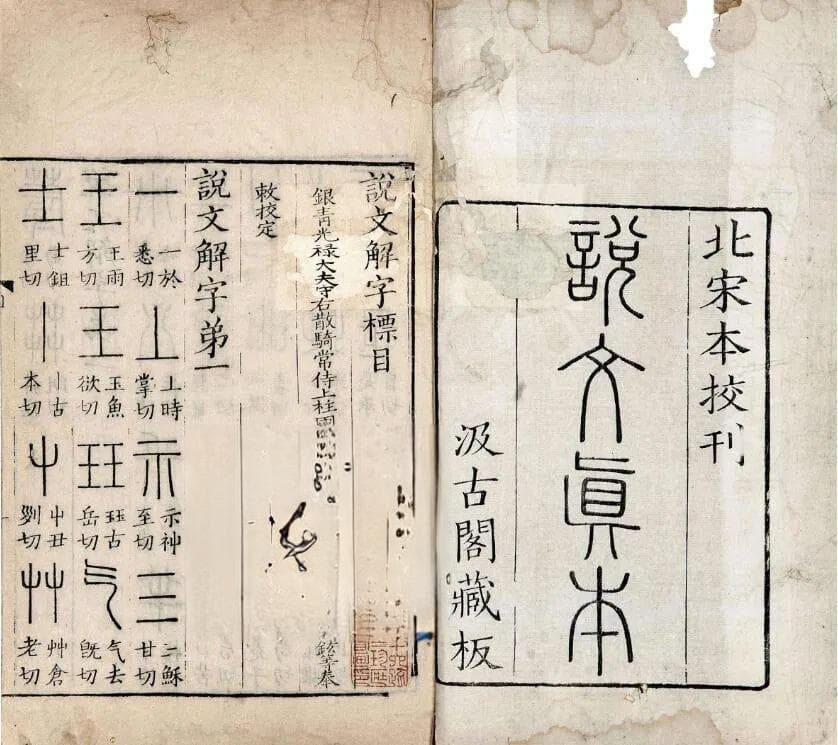 北宋本挍刊
說文眞本
汲古閣藏板
說文解字標目
銀青光禄大夫守右散騎常侍上柱國 鉉等奉
敕挍定
說文解字弟一
一 一於悉切 丄 上時掌切 示 示神至切 三 三穌甘切
王 王雨方切 王 玉魚欲切 玨 玨古岳切 气 气去旣切
士 士鉏里切 丨 丨古本切 屮 屮丑切 艸 艸倉老切